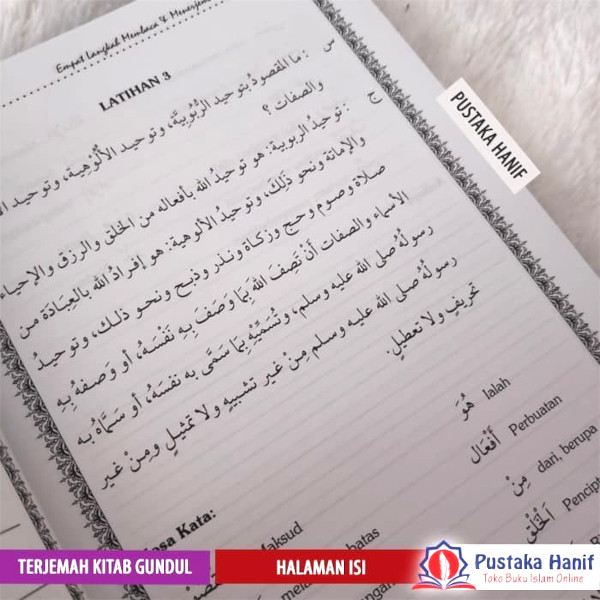 Empat Langkah Membaca & Menerjem
LATIHAN 3
س : ما المقصودُ بتوحيد الرُّبُوبِيَّة، وتوحيد الأُلُوْهِية، وتوحيد
والصفات ؟
ج : توحيدُ الربوبية: هو توحيدُ الله بأفعاله من الخلق والرزق والإحياء
والإماتة ونحو ذَلِكَ، وتوحيدُ الألوهية: هو إفرادُ الله بالعِبَادَة من
صلاة وصوم وحج وزكاة ونذر وذبح ونحو ذلك، وتوحيدُ
الأسماء والصفات أَنْ تَصِفَ اللهَ بِمَا وَصَفَ بِهِ نَفْسَهُ، أو وَصَفهُ بِهِ
رسولُهُ صلى الله عليه وسلم، وتُسَمِّيْهُ بِمَا سَمَّى به نفسَهُ، أو سَمَّاهُ به
رسولُهُ صلى الله عليه وسلم مِنْ غير تشبيهٍ ولا تمثيلٍ ومِنْ غير
تحريفٍ ولا تعطيلٍ.
Kata:
هُوَ Ialah
أَفْعَال Perbuatan
مِنْ dari, berupa
الْخَلْقِ Pencipt
Maksud
PUSTAKA HANIF
TERJEMAH KITAB GUNDUL
HALAMAN ISI
Pustaka Hanif
Toko Buku Islam Online